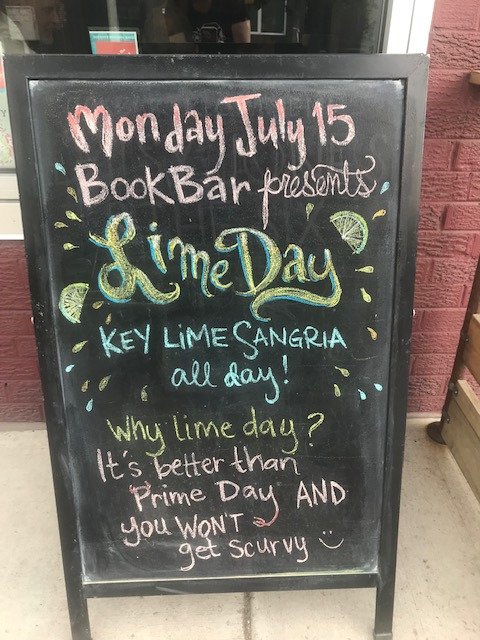 Monday July 15
BookBar presents
Lime Day
KEY LiME SANGRIA
all day!
Why lime day?
It's better than
Prime Day AND
you WON'T
get scurvy